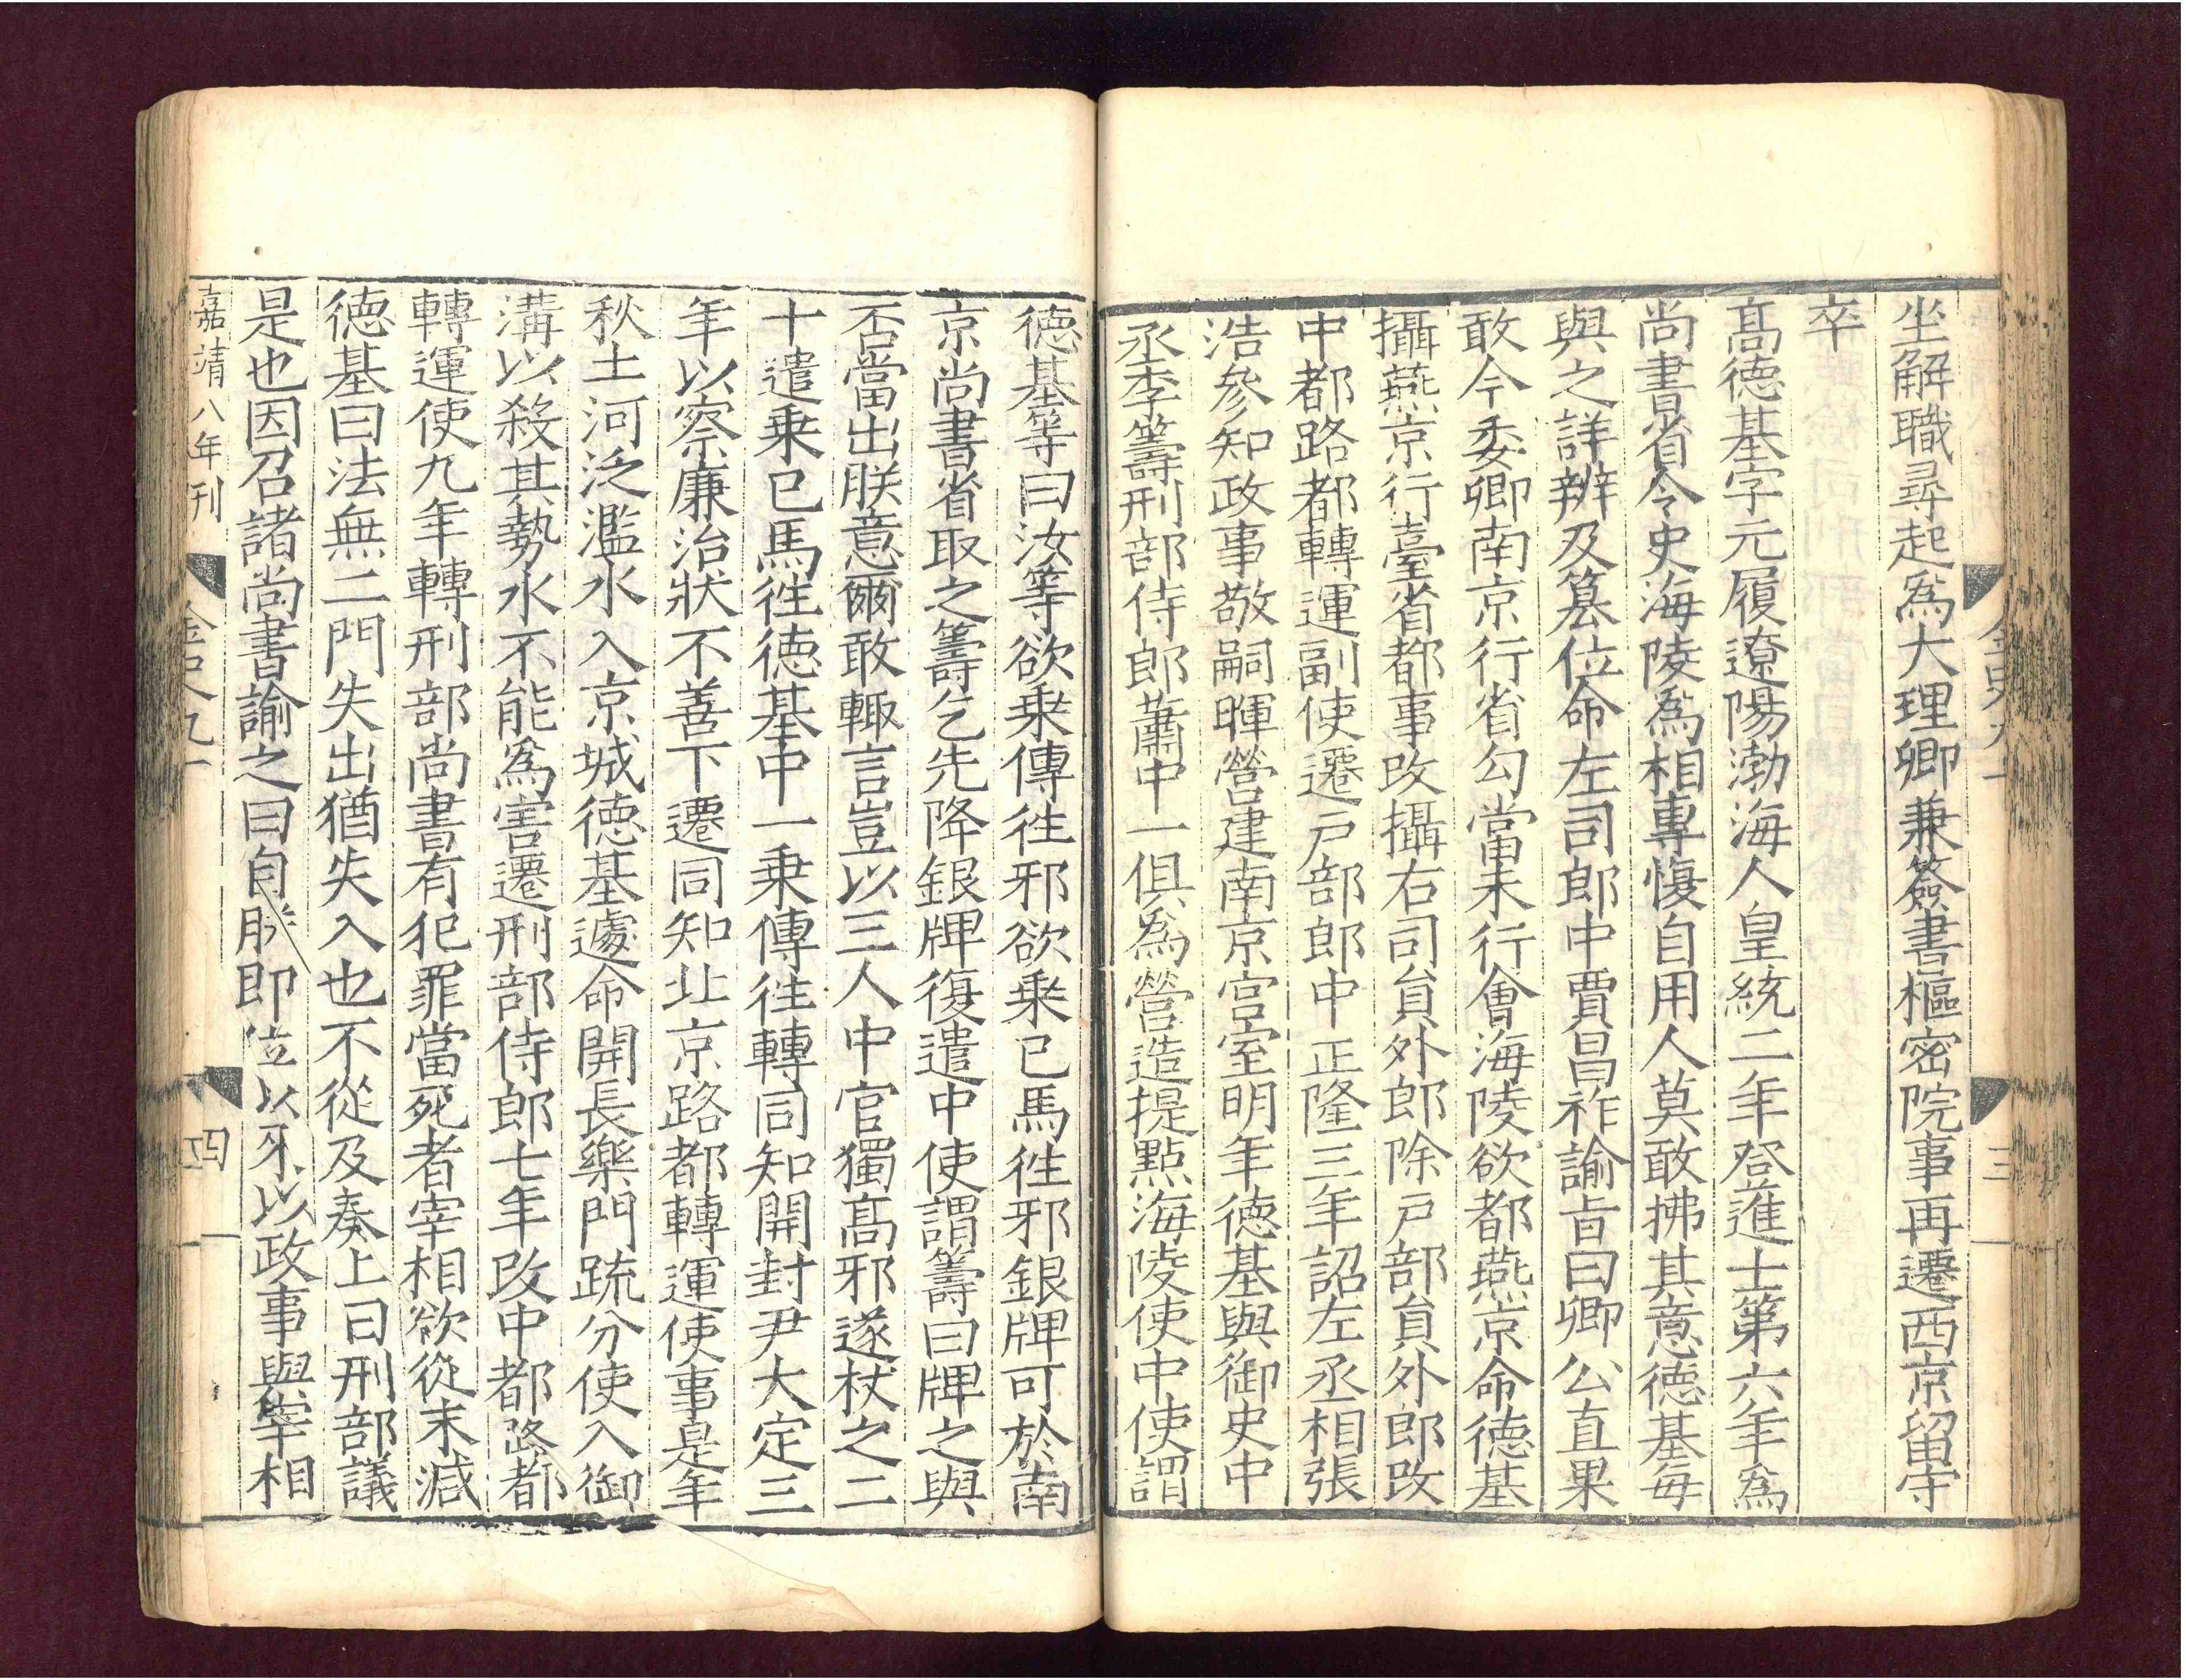 金史九十
三
坐解職尋起爲大理卿兼簽書樞密院事再遷西京留守
卒
高德基字元履遼陽渤海人皇統二年登進士第六年爲
尚書省令史海陵爲相專愎自用人莫敢拂其意德基每
與之詳辨及篡位命左司郎中賈昌祚諭旨曰卿公直果
敢今委卿南京行省勾當未行會海陵欲都燕京命德基
攝燕京行臺省都事改攝右司員外郎除戶部員外郎改
中都路都轉運副使遷戶部郎中正隆三年詔左丞相張
浩參知政事敬嗣暉營建南京宮室明年德基與御史中
丞李籌刑部侍郎蕭中一俱爲營造提點海陵使中使謂
德基等曰汝等欲乗傳徃邪欲乗已馬徃邪銀牌可於南
京尚書省取之籌乞先降銀牌復遣中使謂籌曰牌之與
否當出朕意爾敢輙言豈以三人中官獨高邪遂杖之二
十遣乗已馬徃德基中一乗傳徃轉同知開封尹大定三
年以察廉治狀不善下遷同知北京路都轉運使事是年
秋土河泛濫水入京城德基遽命開長樂門疏分使入御
溝以殺其勢水不能爲害遷刑部侍郎七年改中都路都
轉運使九年轉刑部尚書有犯罪當死者宰相欲從末減
德基曰法無二門失出猶失入也不從及奏上曰刑部議
是也因召諸尚書諭之曰自朕即位以來以政事與宰相
嘉靖八年刊
金史九十
四